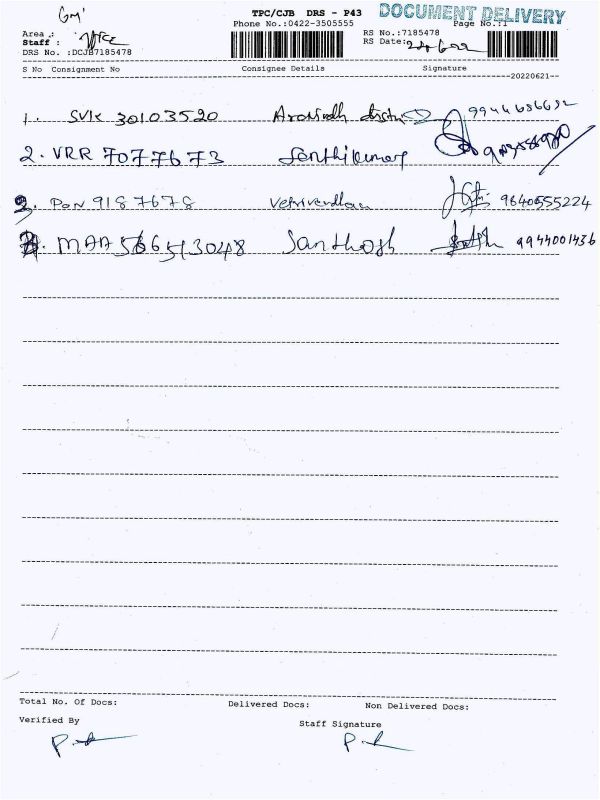 TPC/CJB DRS - P43 DOCUMENT DELIVERY
Phone No.:0422-3505555 Page No.:1
Area :
Staff :
RS No.:7185478
RS Date:
DRS No. :DCJB7185478
S No Consignment No Consignee Details Signature
20220621
1. SVK 30103520 Aravindh
2. VRR 7077673 Senthilkumar
3. PON 9187678 Vetrivendhan 9640555224
4. MAA 566513048 Santhosh 9944001436
Total No. Of Docs: Delivered Docs: Non Delivered Docs:
Verified By Staff Signature